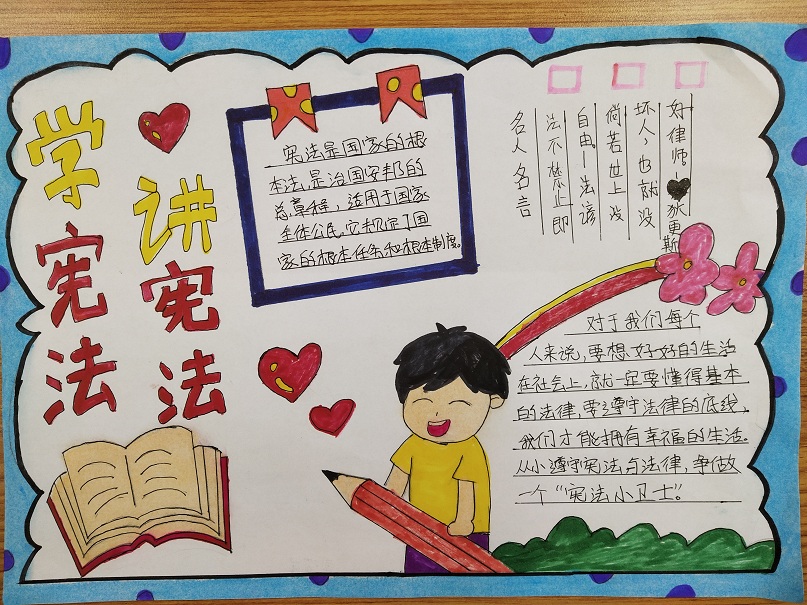 学宪法
讲宪法
宪法是国家的根
本法，是治国安邦的
总章程，适用于国家
全体公民，它规定了国
家的根本任务和根本制度。
名人名言
法不禁止即
自由。—法谚
倘若世上没
坏人，也就没
好律师。—狄更斯
对于我们每个
人来说，要想好好的生活
在社会上，就一定要懂得基本
的法律，要遵守法律的底线，
我们才能拥有幸福的生活。
从小遵守宪法与法律，争做
一个“宪法小卫士”。